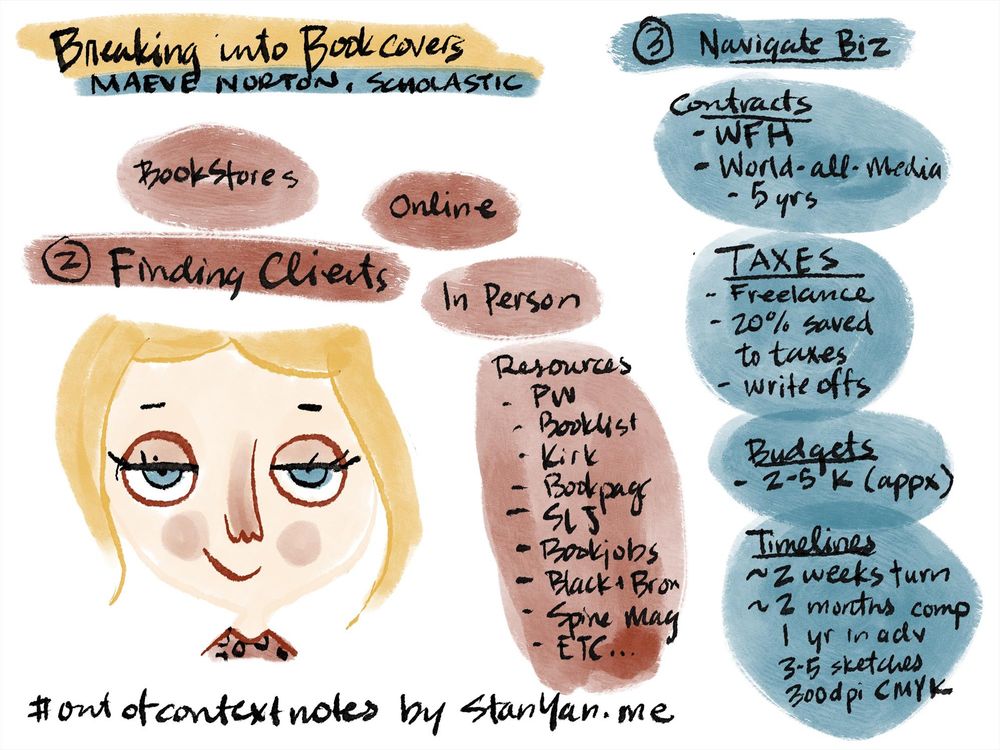 Breaking into Bookcovers
MAEVE NORTON, SCHOLASTIC
BookStores
Online
② Finding Clients
In Person
Resources
- PW
- Booklist
- Kirk
- Bookpage
- SLJ
- Bookjobs
- Black + Bron
- Spine Mag
- ETC...
③ Navigate Biz
Contracts
- WFH
- World-all-media
- 5 yrs
TAXES
- Freelance
- 20% saved
to taxes
- write offs
Budgets
- 2-5 K (appx)
Timelines
~ 2 weeks turn
~ 2 months comp
1 yr in adv
3-5 sketches
300dpi CMYK
#outofcontextnotes by StanYan.me